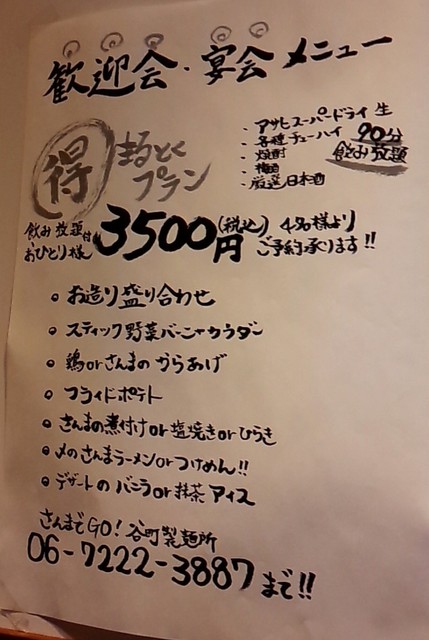 歓迎会・宴会メニュー
・アサヒスーパードライ生
・各種チューハイ
・焼酎
・梅酒
・厳選日本酒
90分
飲み放題
得 まるとく
プラン
飲み放題付
おひとり様 3500円(税込) 4名様より
ご予約承ります!!
・お造り盛り合わせ
・スティック野菜バーニャカウダー
・鶏orさんまのからあげ
・フライドポテト
・さんまの煮付けor塩焼きorひらき
・〆のさんまラーメンorつけめん!!
・デザートのバニラor抹茶アイス
さんまでGO!谷町製麺所
06-7222-3887まで!!